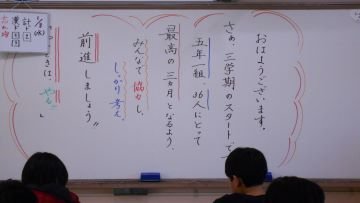 おはようございます。
さぁ、三学期のスタートです
五年一組 36人にとって
最高の 三ヵ月となるよう、
みんなで 協力し、
しっかり考え、
前進しましょう。